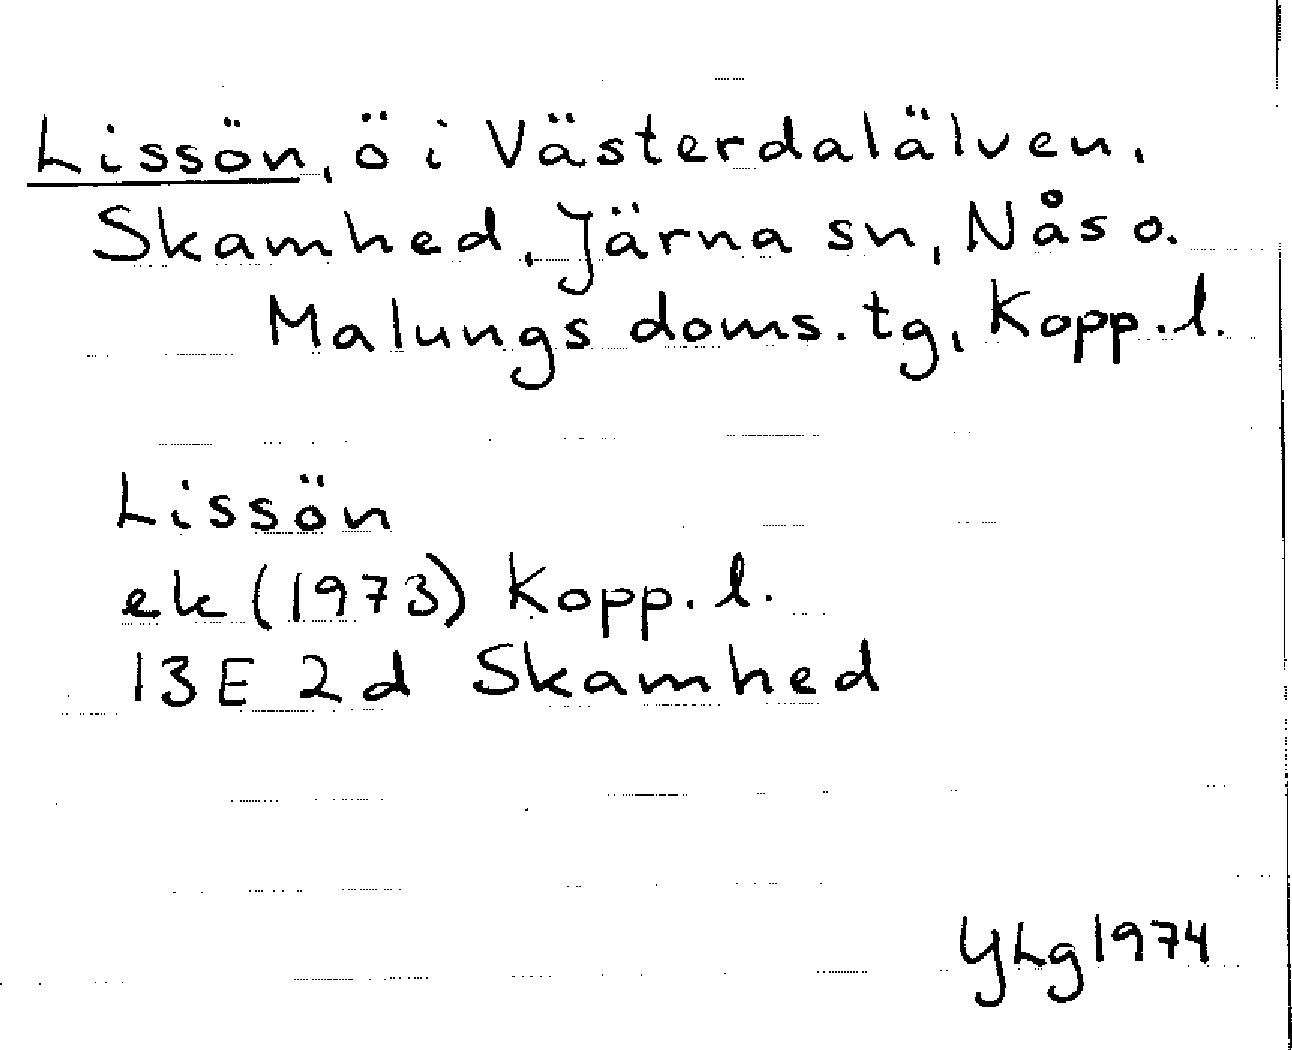 Lissön, ö i Västerdalälven,
Skamhed, Järna sn, Nås o.
Malungs doms. tg, Kopp. l.
Lissön
ek (1973) Kopp. l.
13E 2d Skamhed
YLg 1974